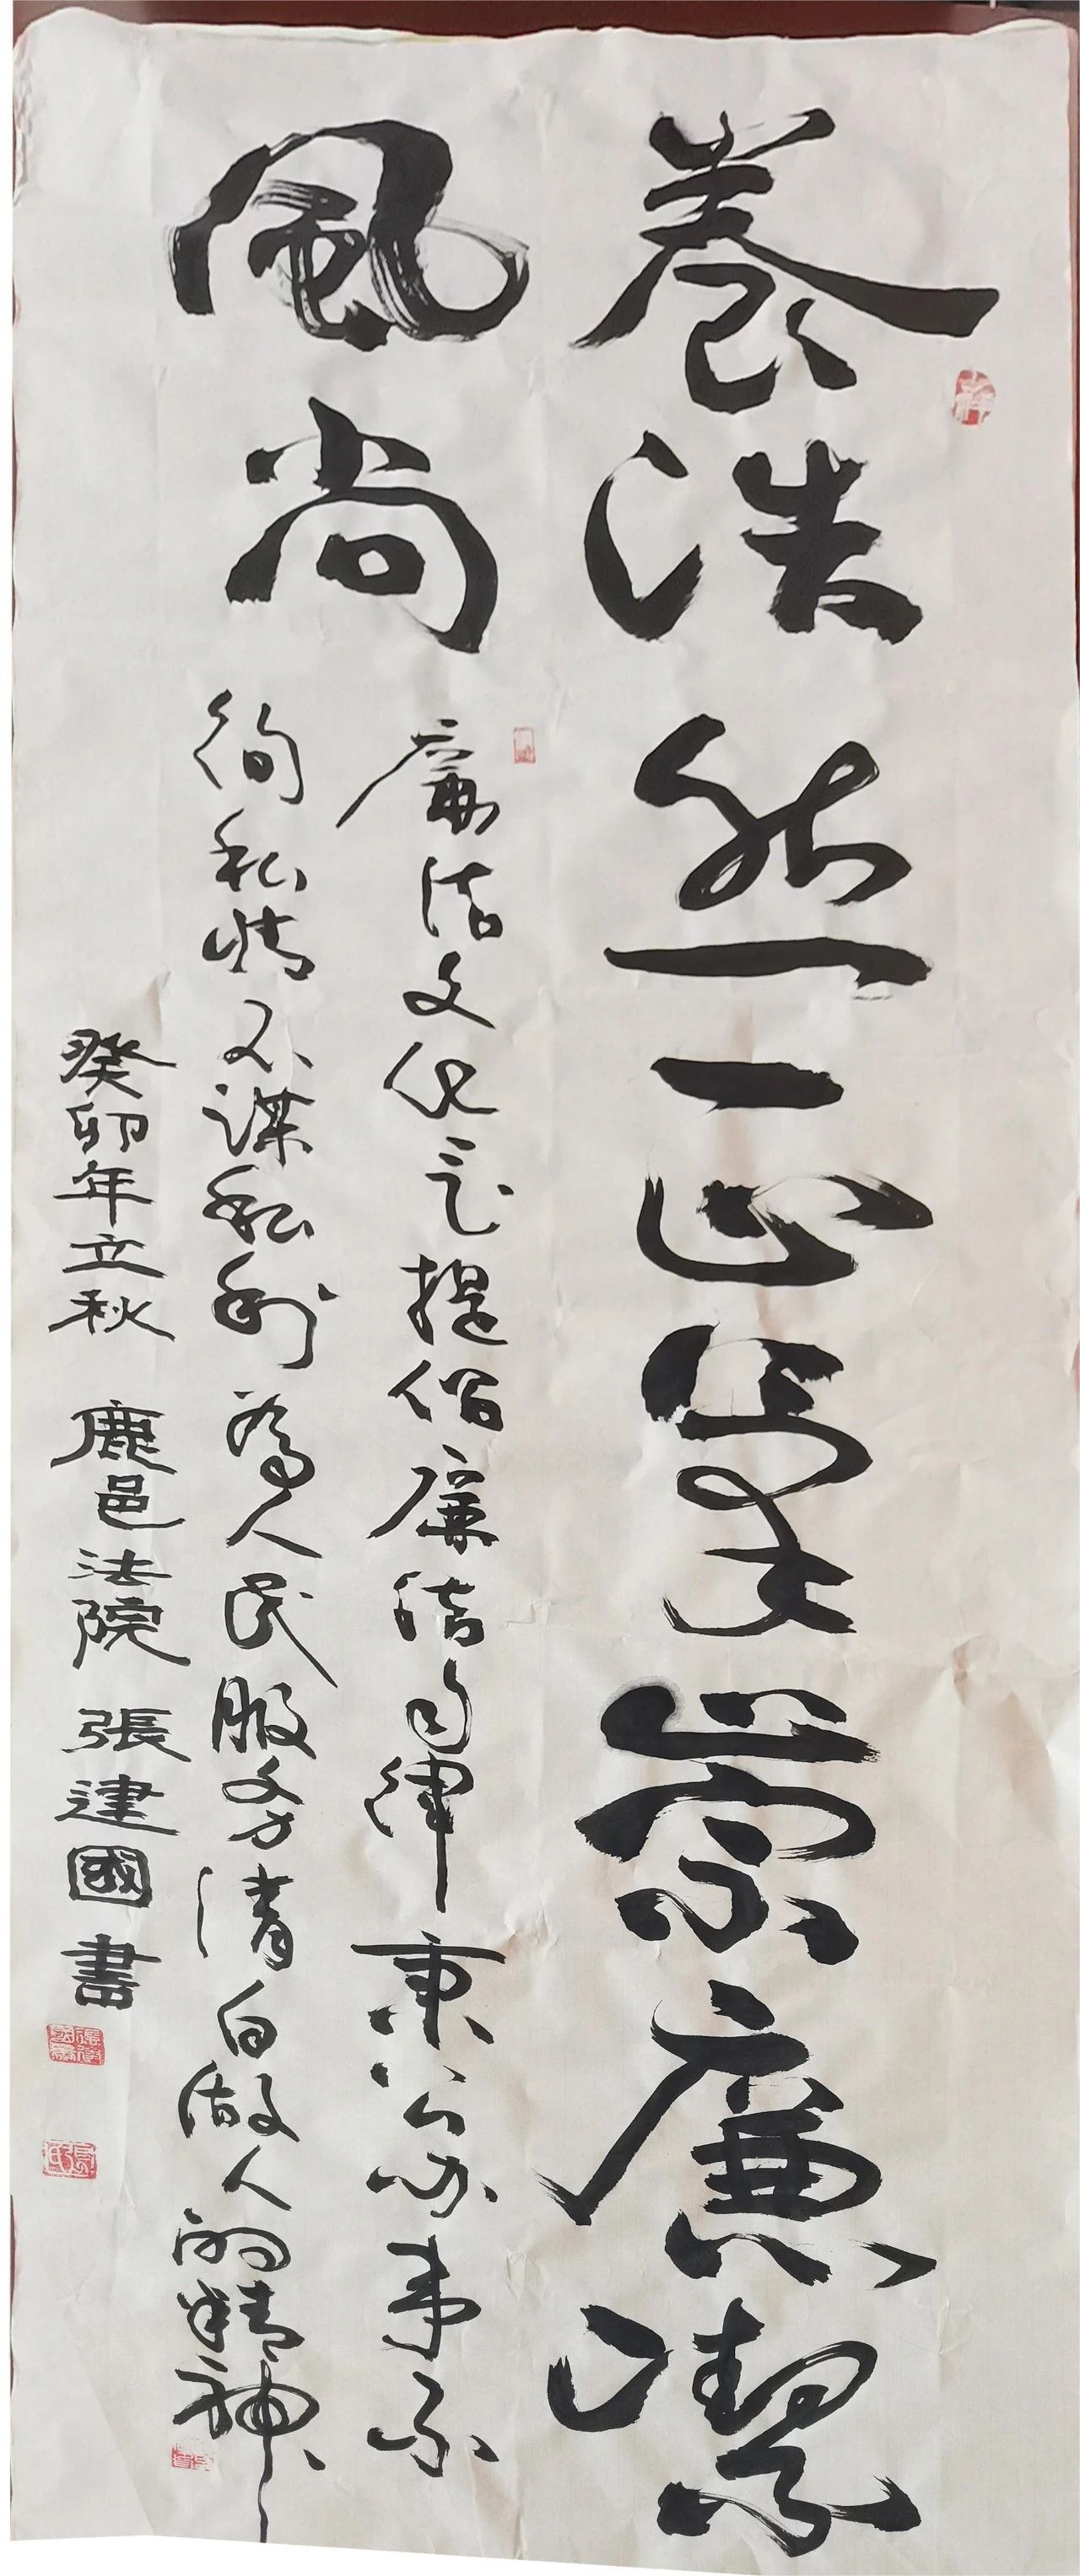 養浩然正氣崇廉潔
風尚
廉洁文化是提倡廉洁自律秉公办事不
徇私情不谋私利為人民服务清白做人的精神
癸卯年立秋 鹿邑法院 張建國書